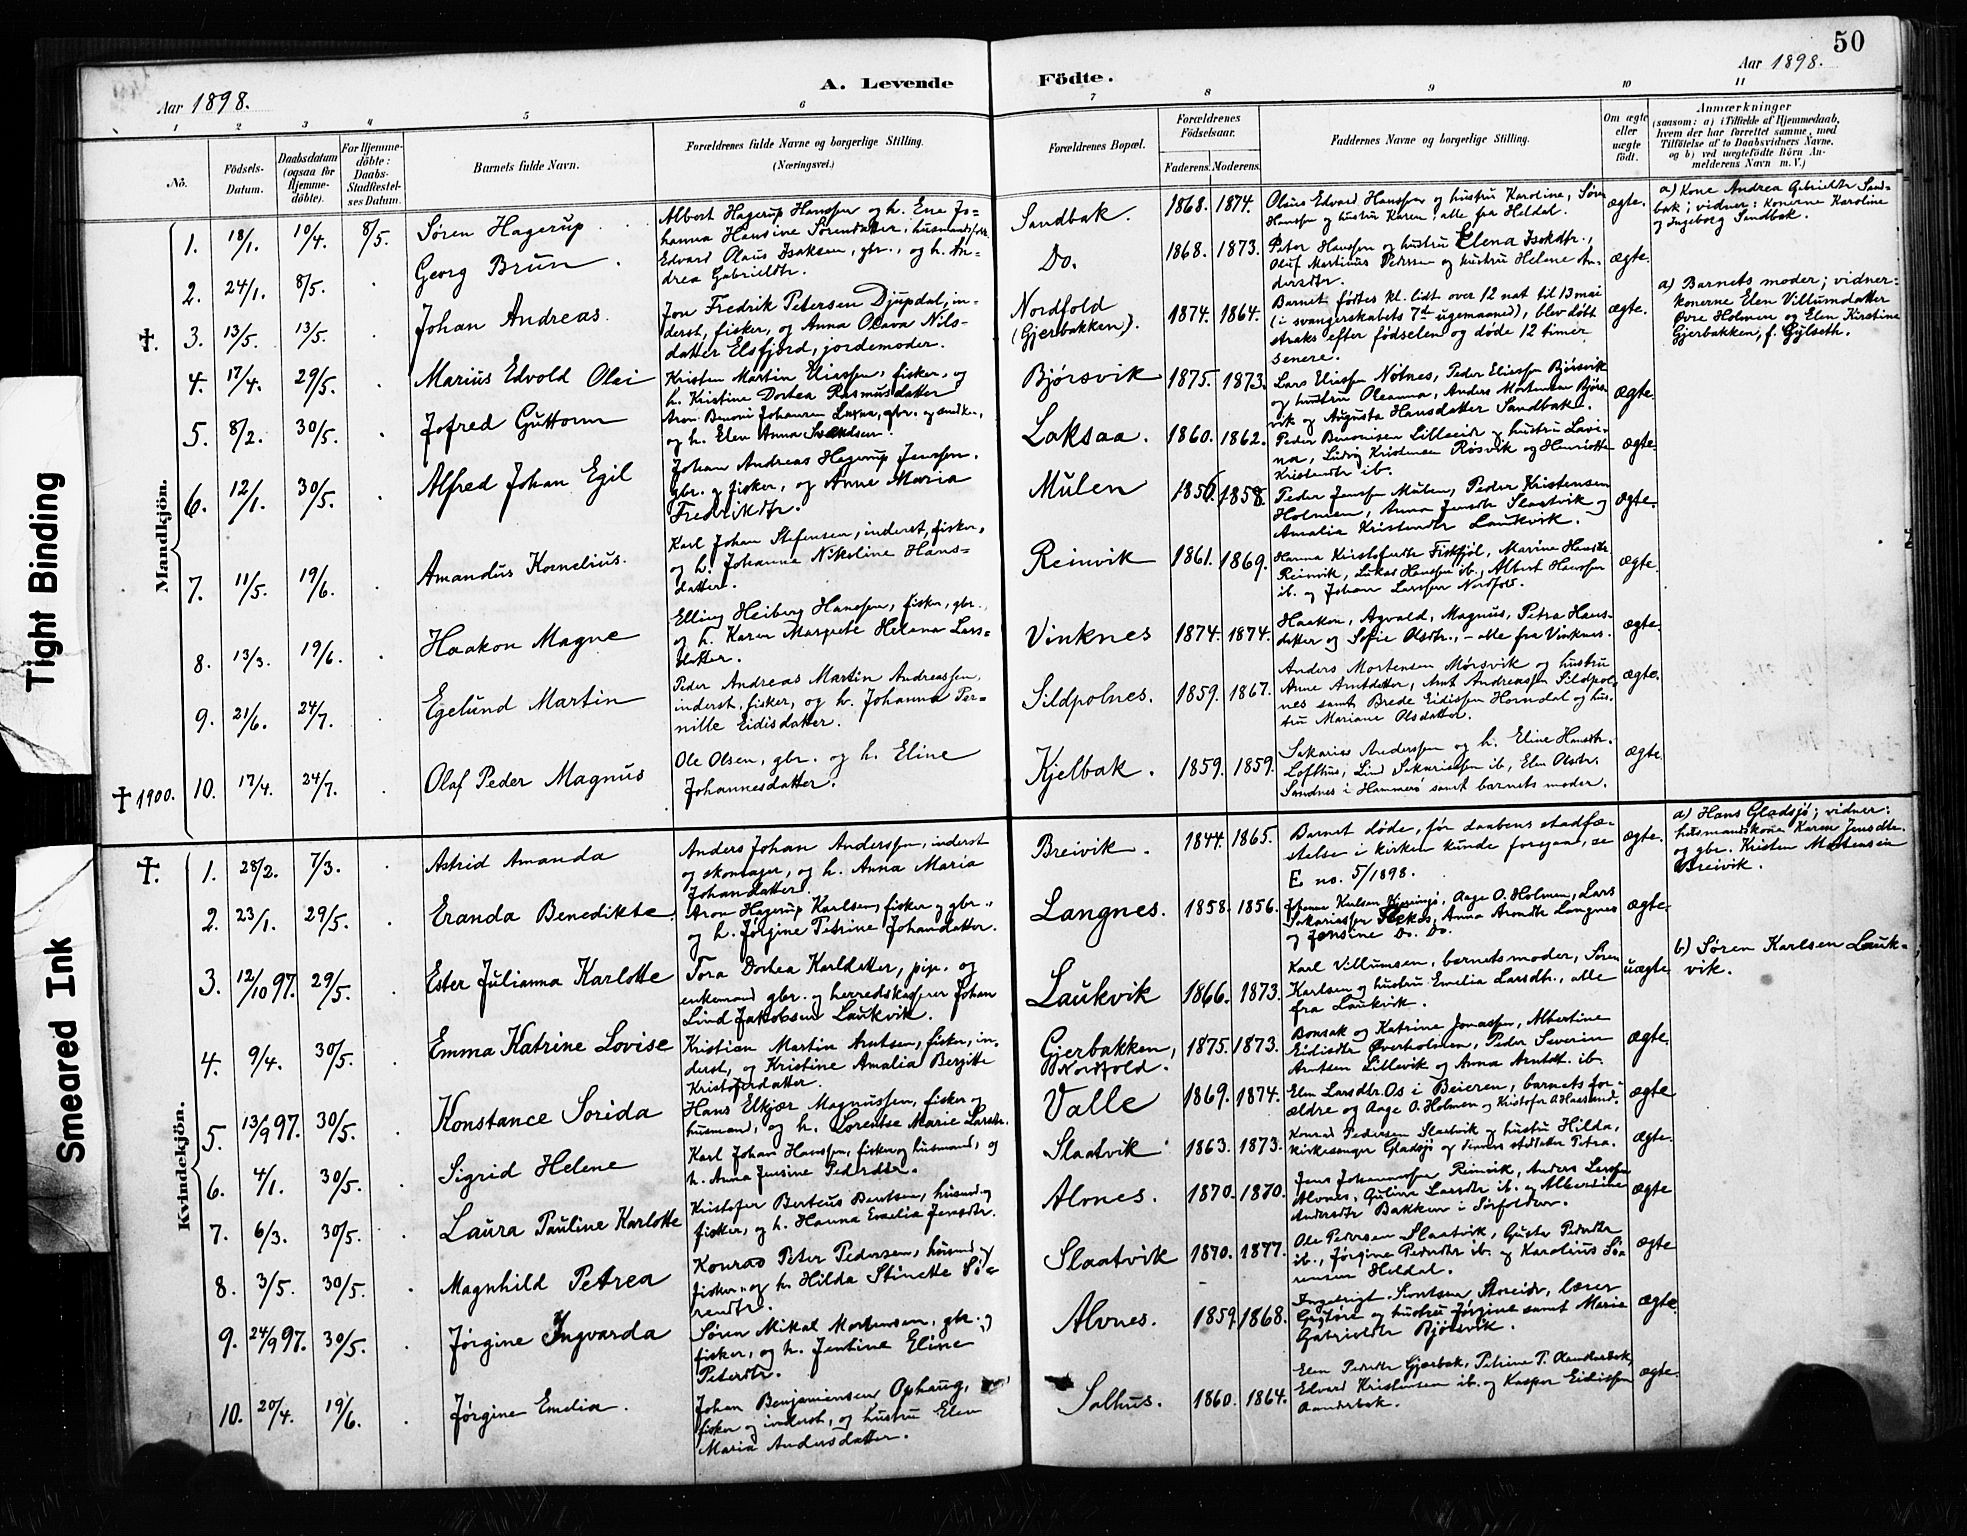 50
Aar 1898.
A. Levende
Födte.
Aar 1898.
1 2 3 4 5 6 7 8 9 10 11
No.
Födsels-
Datum.
Daabsdatum
(ogsaa for
Hjemme-
döbte).
For Hjemme-
döbte:
Daabs-
Stadfæstel-
ses Datum.
Barnets fulde Navn.
Forældrenes fulde Navne og borgerlige Stilling.
(Næringsvei.)
Forældrenes Bopæl.
Forældrenes
Födselsaar.
Faderens. Moderens.
Faddernes Navne og borgerlige Stilling.
Om ægte
eller
uægte
født.
Anmærkninger
(saasom: a) i Tilfælde af Hjemmedaab,
hvem der har forrettet samme, med
Tilföielse af to Daabsvidners Navne,
og b) ved uægtefödte Börn An-
melderens Navn m. V.)
Mandkjön.
1. 18/1. 10/4. 8/5. Søren Hagerup
Albert Hagerup Hanssen og h. Ene Jo-
hanna Hansine Sørensdatter, husmandsfolk
Sandbak. 1868. 1874.
Olaus Edvard Hanssen og hustru Karoline, Søren
Hanssen og hustru Karen, alle fra Heldal.
ægte.
a) Kone Andrea Gabrielsdtr Sand-
bak; vidner: Konerne Karoline
og Ingeborg Sandbak.
2. 24/1. 8/5. Georg Brun.
Edvard Olaus Isaksen, gbr., og h. An-
drea Gabrielsdtr.
Do. 1868. 1873.
Peter Hanssen og hustru Elena Isaksdtr.,
Oluf Martinus Pedersen og hustru Helene An-
dersdtr.
ægte.
✝. 3. 13/5. 13/5. Johan Andreas.
Jon Fredrik Petersen Djupdal, in-
derst, fisker, og Anna Olava Nils-
datter Elsfjord, jordemoder.
Nordfold
(Gjerbakken). 1874. 1864.
Barnet fødtes kl. lidt over 12 nat til 13 mai
(i svangerskabets 7de ugemaaned), blev døbt
straks efter fødselen og døde 12 timer
senere.
ægte.
a) Barnets moder; vidner:
konerne Elen Villumsdatter
Øvre Holmen og Elen Kirstine
Gjerbakken, f. Gylseth.
4. 17/4. 29/5. Marius Edvold Olai
Kristen Martin Eliassen, fisker, og
h. Kristine Dorthea Rasmusdatter
Bjørsvik 1875. 1873.
Lars Eliassen Notnes, Peder Eliassen Bjørsvik
og hustru Oleanna, Anders Mortensen Bjørs-
vik og Augusta Hansdatter Sandbak.
ægte
5. 8/2. 30/5. Jofred Guttorm
og h. Elen Anna Svendsen.
Laksaa. 1860. 1862.
Peder Benonisen Lilleeid og hustru Lavi-
na, Ludvig Kristensen Røsvik og Henriette
Kristensdtr ib.
ægte
6. 12/1. 30/5. Alfred Johan Egil
Johan Andreas Hagerup Jenssen,
gbr. og fisker, og Anne Maria
Fredriksdtr.
Mulen 1856. 1858.
Peder Jenssen Mulen, Peder Kristensen
Holmen, Anna Jensdtr Slaatvik og
Amalia Kristensdtr Laukvik.
ægte.
7. 11/5. 19/6. Amandus Kornelius.
Karl Johan Stefensen, inderst, fisker,
og h. Johanna Nikoline Hans-
datter.
Reinvik 1861. 1869.
Reinvik, Lukas Hanssen ib., Albert Hanssen
ib. og Johan Larssen Nordfold.
ægte.
8. 13/3. 19/6. Haakon Magne
Elling Heiberg Hanssen, fisker, gbr.,
og h. Karen Margrete Helena Lars-
datter.
Vinknes 1874. 1874.
Haakon, Agvald, Magnus, Petra Hans-
datter og Sofie Olsdtr., - alle fra Vinknes.
ægte.
9. 21/6. 24/7. Egelund Martin
Peder Andreas Martin Andreassen,
inderst, fisker, og h. Johanna Per-
nille Eidisdatter.
Sildpolnes. 1859. 1867.
Anders Mortensen Mørsvik og hustru
Anne Arntdatter, Arnt Andreassen Sildpol-
nes samt Brede Eidissen Horndal og hus-
tru Mariane Olsdatter.
ægte.
✝ 1900. 10. 17/4. 24/7. Olaf Peder Magnus
Ole Olsen, gbr. og h. Eline
Johannesdatter.
Kjelbak. 1859. 1859.
Sakarias Anderssen og h. Eline Hansdtr.
Lofthus, Lind Sakariassen ib., Elen Olsdtr.
Sandnes i Hammerø samt barnets moder.
ægte
Kvindekjön.
✝. 1. 28/2. 7/3. Astrid Amanda
Anders Johan Anderssen, inderst
og skomager, og h. Anna Maria
Johansdatter.
Breivik. 1844. 1865.
Barnet døde, før daabens stadfæ-
stelse i kirken kunde foregaa, se
E no. 5/1898.
ægte.
a) Hans Gladsjø; vidner:
husmandskone Karen Jensdtr.
og gbr. Kristen Mortensen
Breivik.
2. 23/1. 29/5. Eranda Benedikte
Aron Hagerup Karlsen, fisker og gbr.,
og h. Jørgine Petrine Johansdatter.
Langnes. 1858. 1856.
Aage O. Holmen, Lars
Anna Aronsdtr Langnes
og Jensine Do. Do.
ægte
3. 12/10 97. 29/5. Ester Julianna Karlotte
Tora Dorthea Karlsdatter, pige, og
enkemand gbr. og herredskasserer Johan
Lind Jakobsen Laukvik.
Laukvik 1866. 1873.
Karl Villumsen, barnets moder, Søren
Karlsen og hustru Emelia Larsdtr., alle
fra Laukvik.
uægte
b) Søren Karlsen Lauk-
vik.
4. 9/4. 30/5. Emma Katrine Lovise
Kristian Martin Arntsen, fisker, in-
derst, og Kristine Amalia Bergitte
Kristofersdatter.
Gjerbakken,
Nordfold. 1875. 1873.
Bonsak og Katrine Jonassen, Albertine
Eidisdtr Øverholmen, Peder Severin
Arntsen Lillevik og Anna Arntsdtr. ib.
ægte.
5. 13/9 97. 30/5. Konstance Sorida
Hans Elkjær Magnussen, fisker og
husmand, og h. Lorentse Marie Larsdtr.
Valle 1869. 1874.
Elen Larsdtr. Os i Beieren, barnets for-
ældre og Aage O. Holmen og Kristofer A. Haarsand.
ægte
6. 4/1. 30/5. Sigrid Helene
Karl Johan Hanssen, fisker og husmand, og
h. Anna Jensine Pedersdtr.
Slaatvik 1863. 1873.
Konrad Pedersen Slaatvik og hustru Hilda,
kirkesanger Gladsjø og dennes steddatter Petra.
ægte.
7. 6/3. 30/5. Laura Pauline Karlotte
Kristofer Berteus Bentsen, husmd. og
fisker, og h. Hanna Emelia Jensdtr.
Alvnes. 1870. 1870.
Jens Johannessen Reinvik, Anders Larssen
Alvnes, Guline Larsdtr ib. og Albertine
Andersdtr Bakken i Sørfolden.
ægte
8. 3/5. 30/5. Magnhild Petrea
Konrad Peter Pedersen, husmd. og
fisker, og h. Hilda Stinette Sø-
rensdtr.
Slaatvik 1870. 1877.
Ole Pedersen Slaatvik, Gusta Pedersdtr
ib., Jørgine Pedersdtr ib. og Karolius Sø-
rensen Heldal.
ægte
9. 24/9 97. 30/5. Jørgine Ingvarda
Søren Mikal Mortensen, gbr. og
fisker, og h. Jentine Eline
Petersdtr.
Alvnes. 1859. 1868.
og hustru Jørgine samt Marie
Gabrielsdtr Bjørsvik.
ægte
10. 20/4. 19/6. Jørgine Emelia.
Johan Benjaminsen Ophaug,
fisker og inderst, og hustru Elen
Maria Andersdatter.
Salhus. 1860. 1864.
Elen Pedersdtr Gjærbak, Petrine P. Aanderbak,
Edvard Kristensen ib. og Kasper Eidissen
Aanderbak.
ægte.
Tight Binding
Smeared Ink